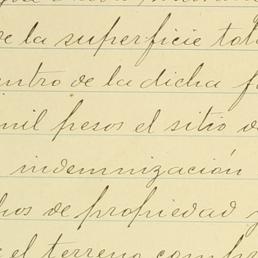 de la superficie tot
entro de la dicha f
mil pesos el sitio d
indemnización
hos de propiedad y
e el terreno comp